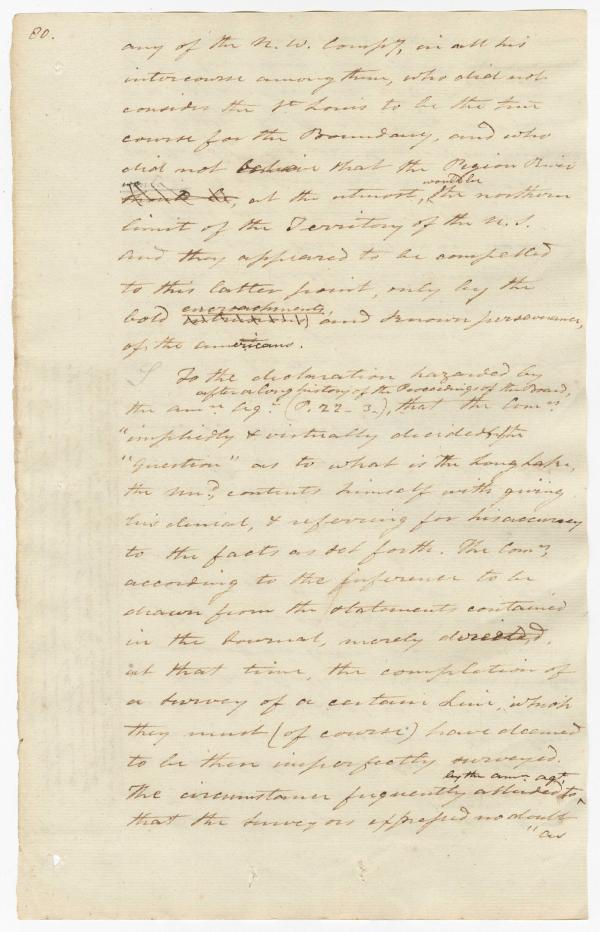 80.
any of the N. W. Compy, in all his
intercourse among them, who did not
consider the St Louis to be the true
course for the Boundary, and who
did not believe that the Pigeon River
would be
at the utmost, the northern
limit of the Territory of the U. S.
And they appeared to be compelled
to this latter point, only by the
encroachments,
bold and known perseverance,
of the americans.
To the declaration hazarded by
after a long history of the Proceedings of the Board,
the amn. Agt. (P. 22-3.), that the Comrs
"impliedly & virtually decided the
"Question" as to what is the Long Lake,
the Und. contents himself with giving
his denial, & referring for his accuracy
to the facts as set forth. The Comrs,
according to the inference to be
drawn from the statements contained
in the Journal, merely directed,
at that time, the completion of
a survey of a certain Line, which
they must (of course) have deemed
to be then imperfectly surveyed.
by the amn. agt.
The circumstance frequently alluded to
that the surveyors expressed no doubt
"as